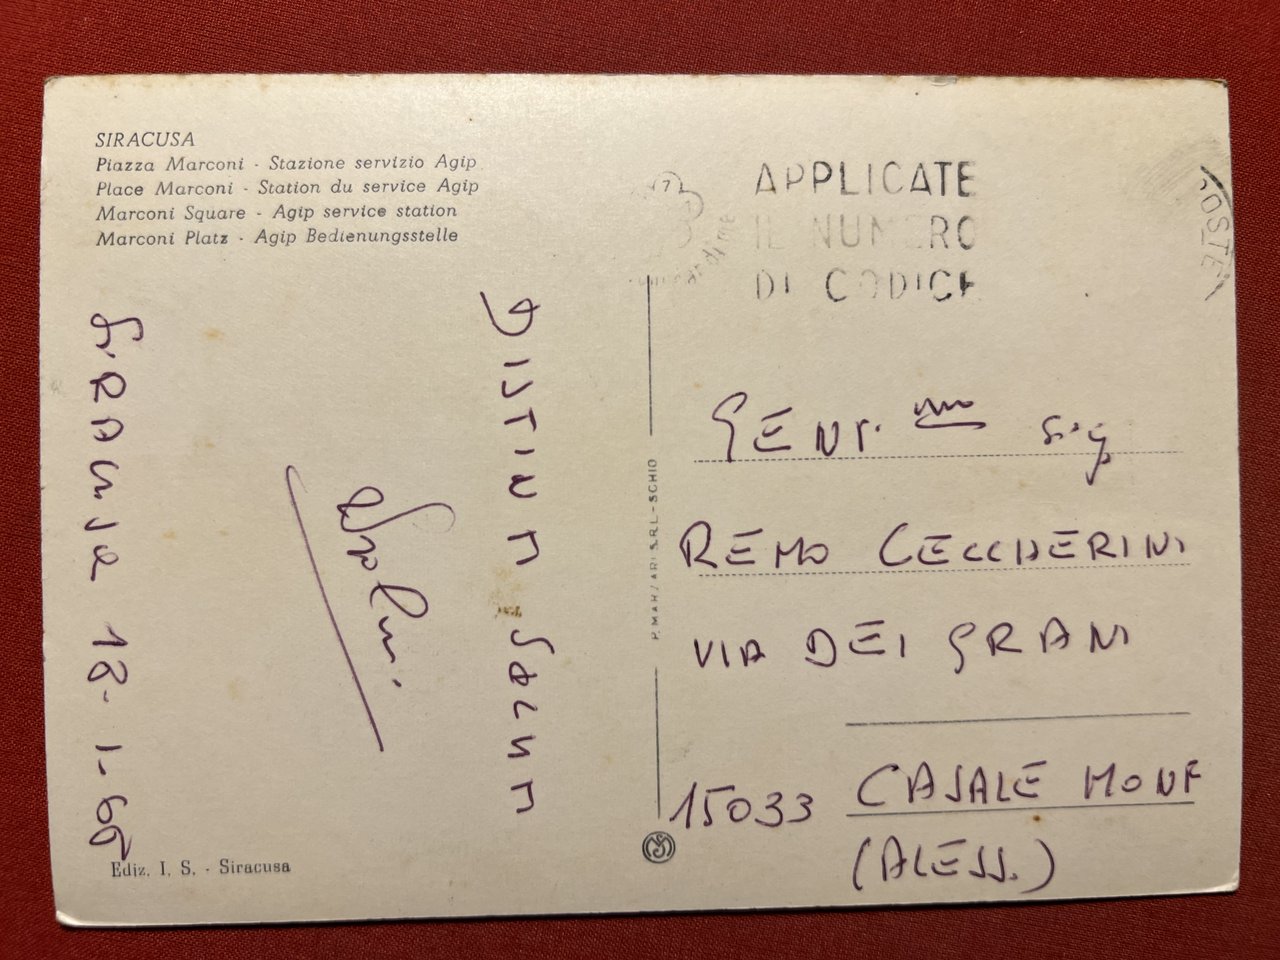 SIRACUSA
Piazza Marconi - Stazione servizio Agip
Place Marconi - Station du service Agip
Marconi Square - Agip service station
Marconi Platz - Agip Bedienungsstelle
APPLICATE
IL NUMERO
DI CODICE
POSTE
DISTINTI SALUTI
SIRACUSA 18-1-69
P. MARZARI S.R.L. - SCHIO
GENT.mo Sig
REMO CECCHERINI
VIA DEI GRANI
15033 CASALE MONF
(ALESS.)
Ediz. I. S. - Siracusa